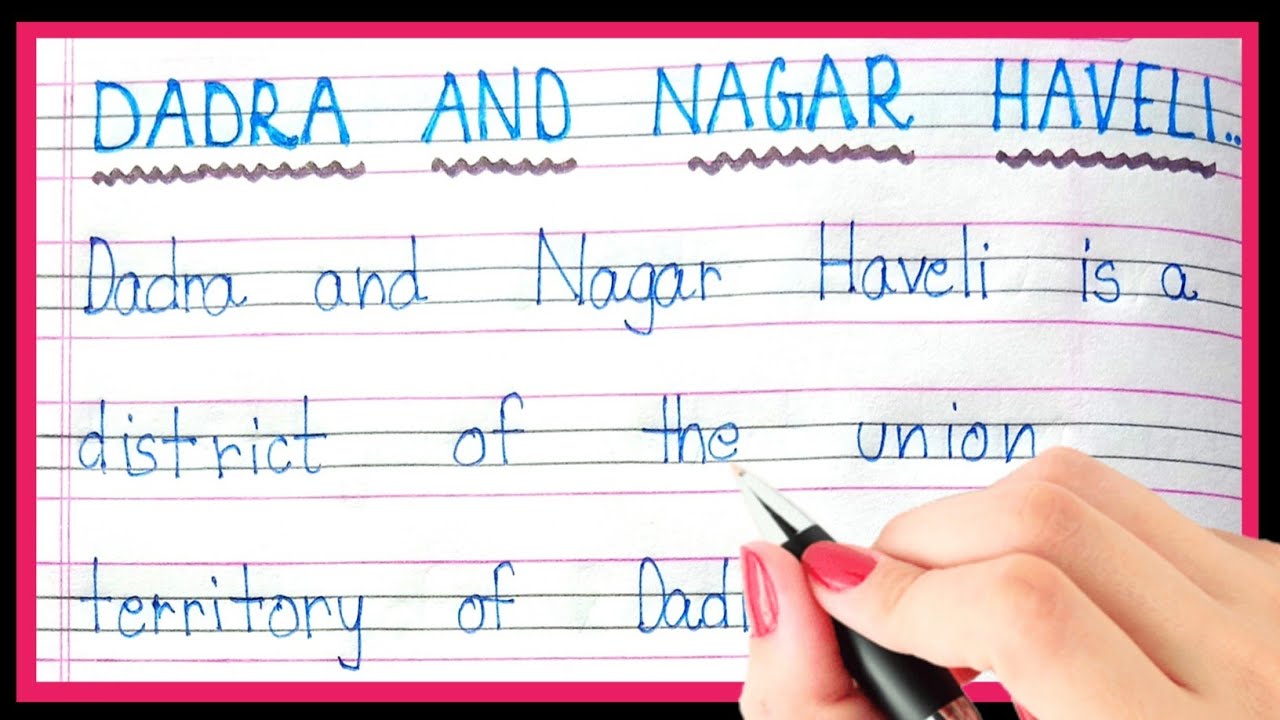 DADRA AND NAGAR HAVELI..
Dadra and Nagar Haveli is a
district of the union
territory of